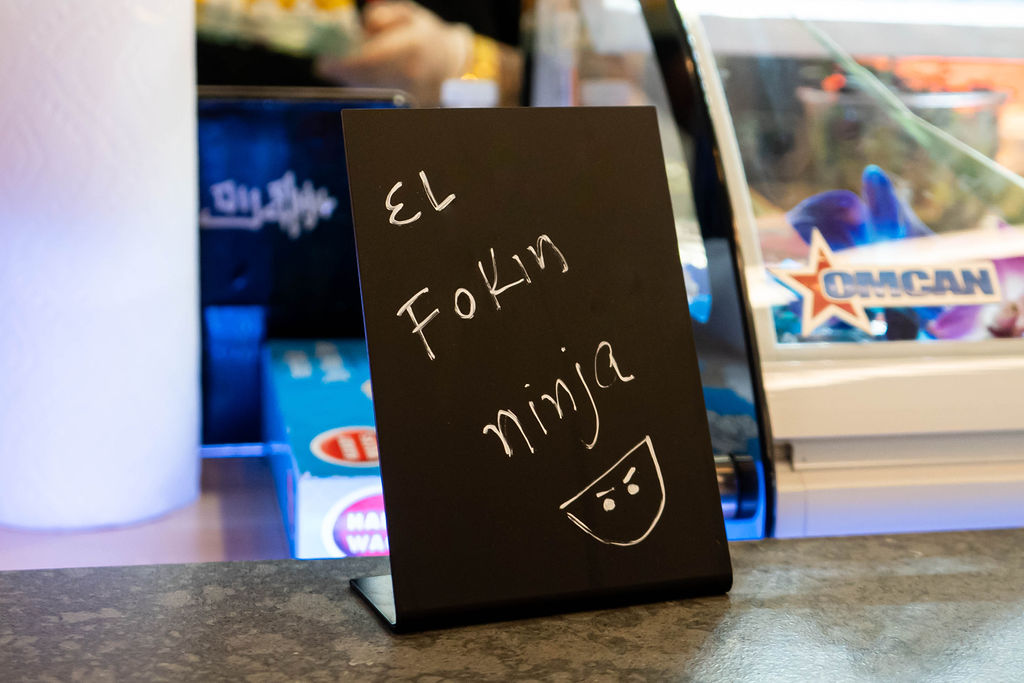 EL
FOKIN
ninja
OMCAN